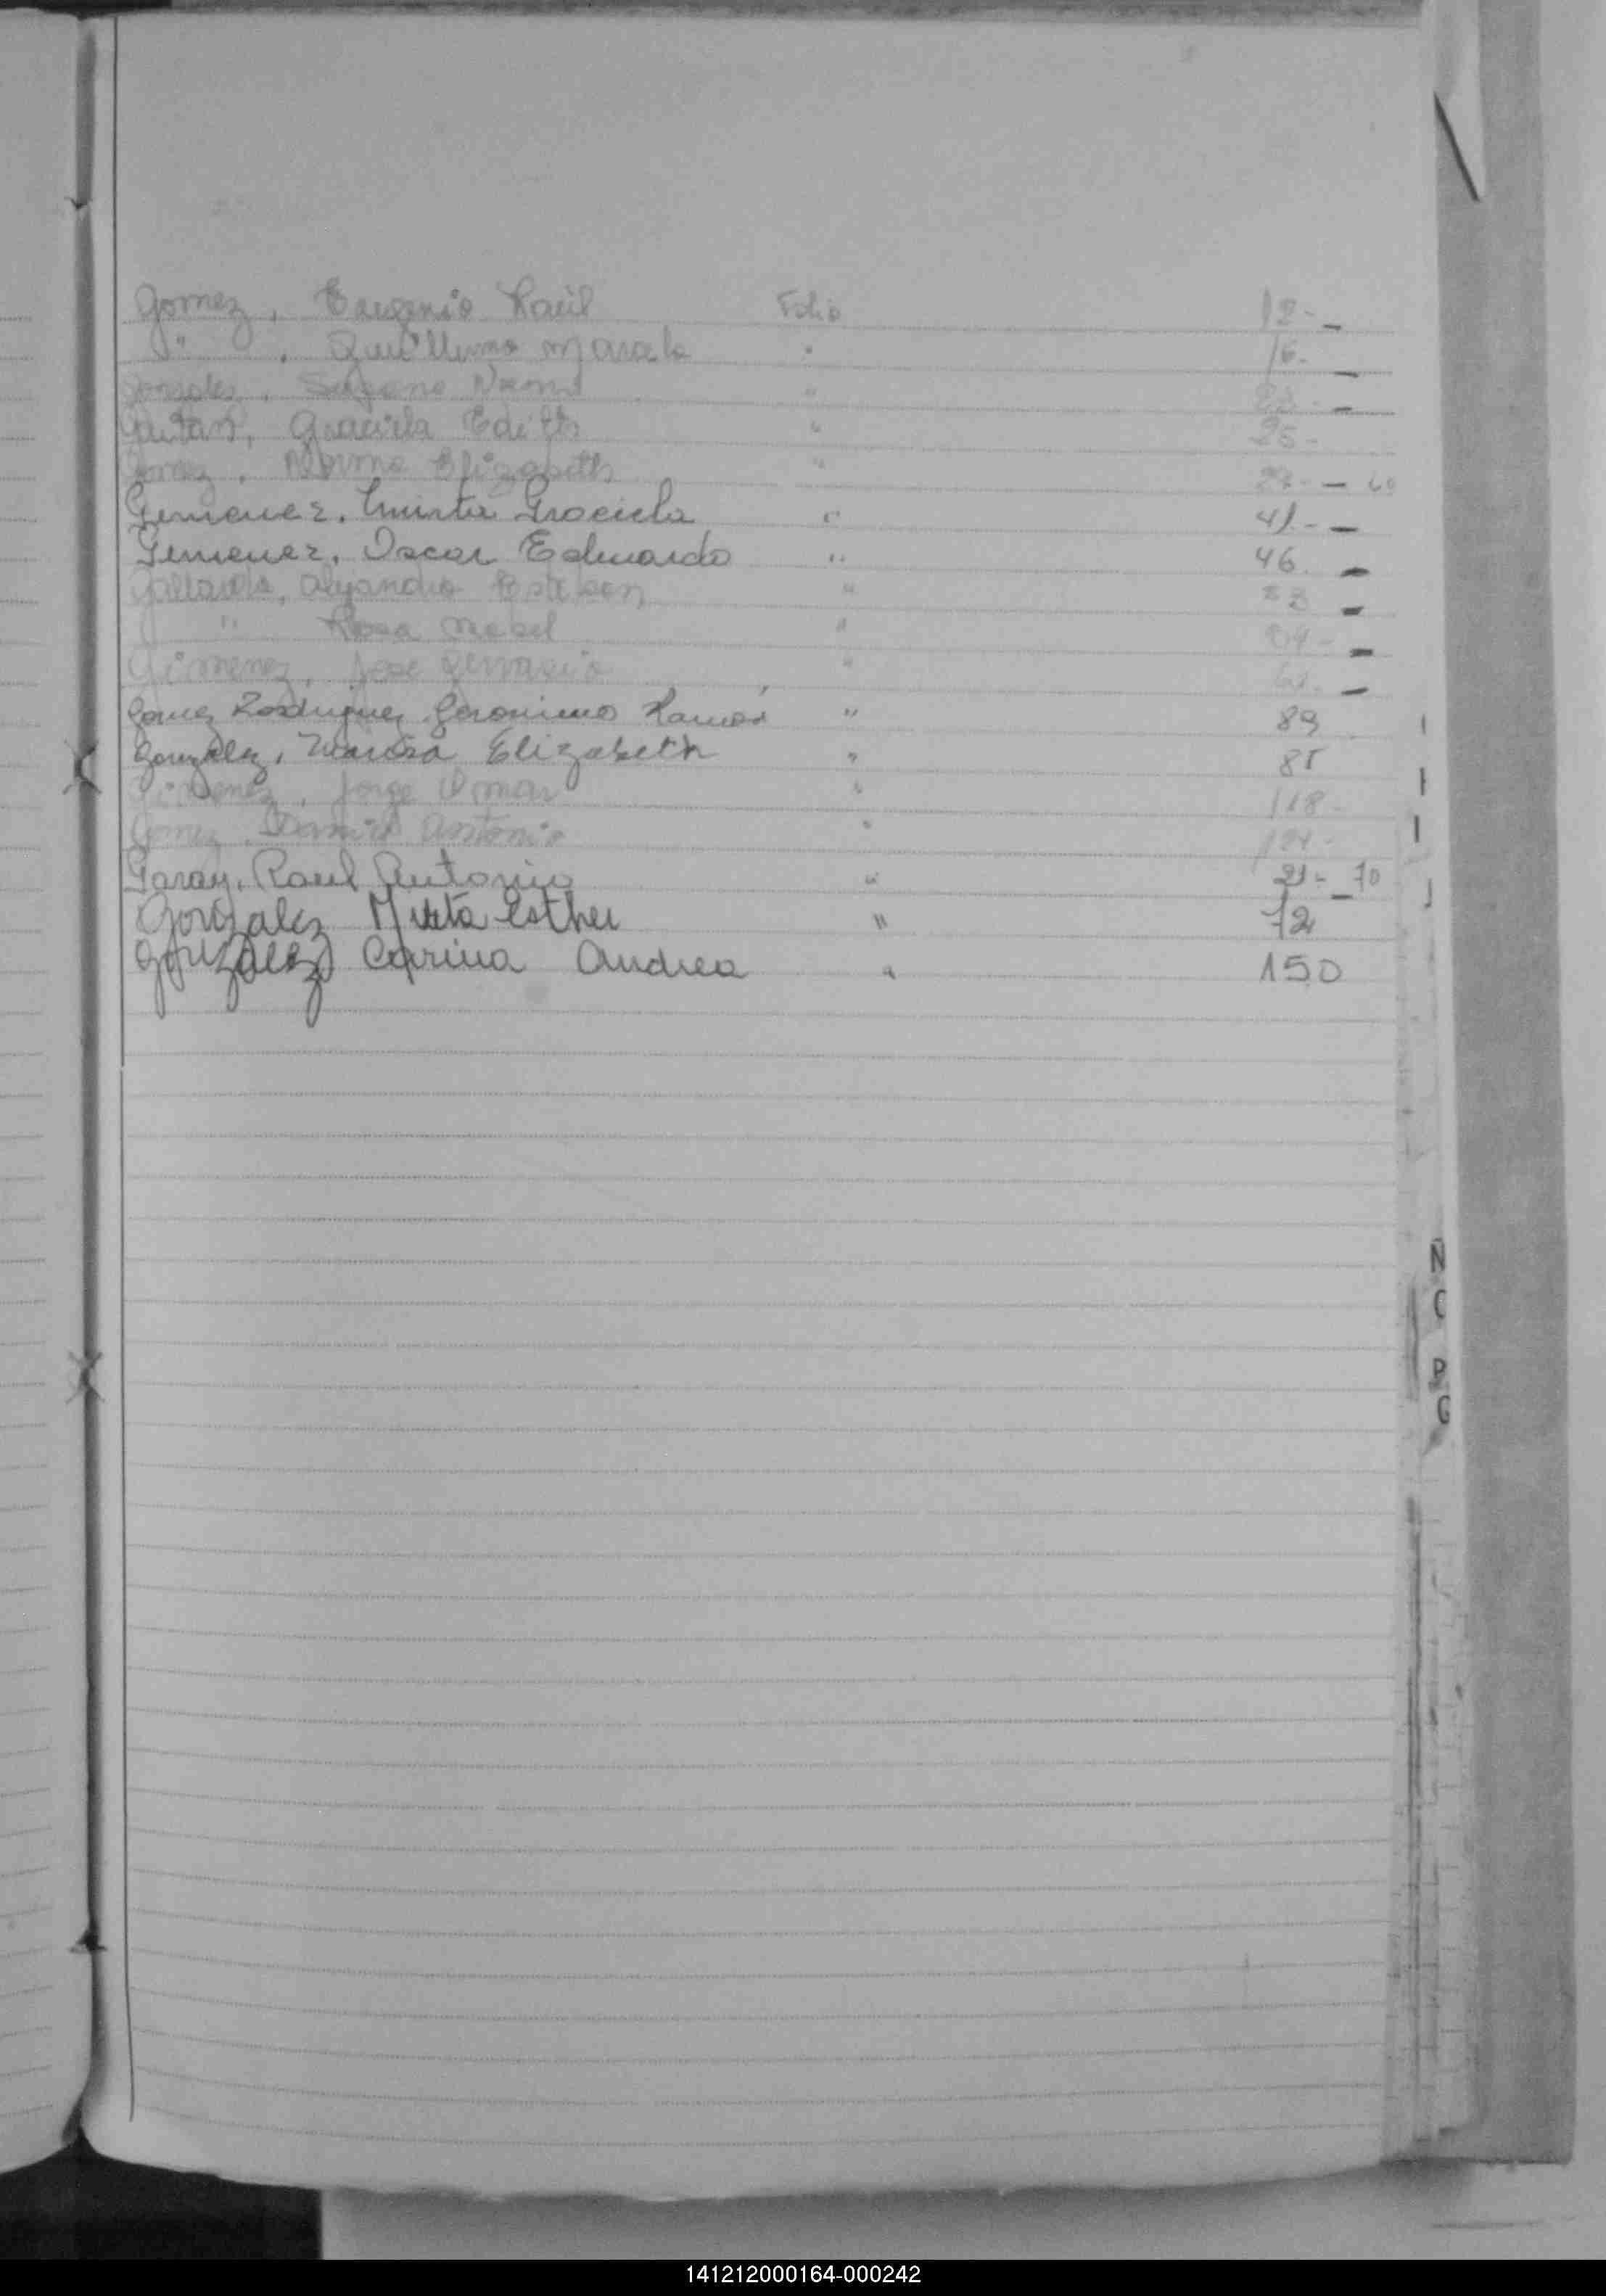 Gomez, Eugenio Raúl Folio 12-_
" , Guillermo Marcelo " 16-_
Gonzalez, Susana Noemi " _
Gaitan, Graciela Edith " 25-
Gomez, Norma Elizabeth " 27-_ 60
Gimenez, Mirta Graciela " 41-_
Gimenez, Oscar Eduardo " 46_
Gallardo, Alejandro Esteban " 53_
" Rosa Mabel " _
Gimenez, Jose Gervasio " _
Gomez Rodriguez, Geronimo Ramón " 89
Gonzalez, Marisa Elizabeth " 85
Gimenez, Jorge Omar " 118-
Gomez, Daniel Antonio "
Garay, Raul Antonio " 21-_70
Gonzalez Mirta Esther " 72
Gonzalez Carina Andrea " 150
N
C
P
G
141212000164-000242